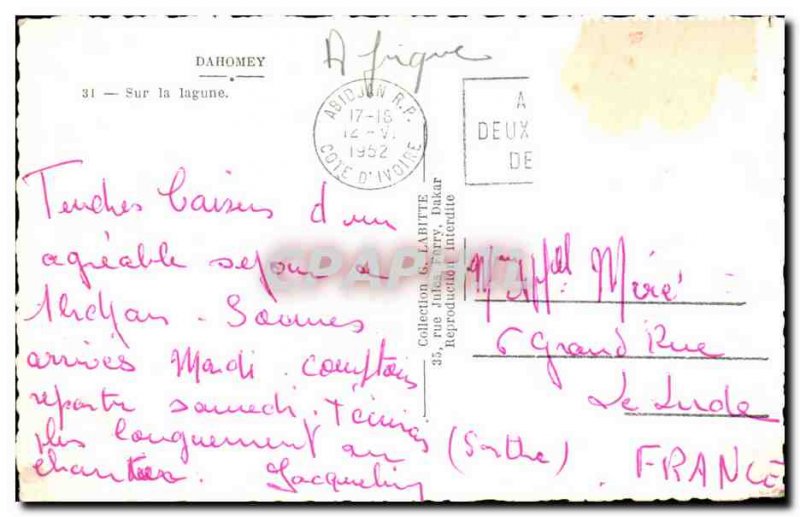 DAHOMEY
31 — Sur la lagune.
Afrique
ABIDJAN R.P.
17-18
12 - VI
1952
COTE D'IVOIRE
A
DEUX
DE
Tendres baisers d'un
agréable sejour a
Abidjan. Sommes
arrivés Mardi. Comptons
repartir samedi. T'écrirai
plus longuement au
Jacqueline
Collection G. LABITTE
35, rue Jules Ferry, Dakar
Reproduction interdite
CPARAMA
Miré
6 Grand Rue
Le Lude
(Sarthe). FRANCE